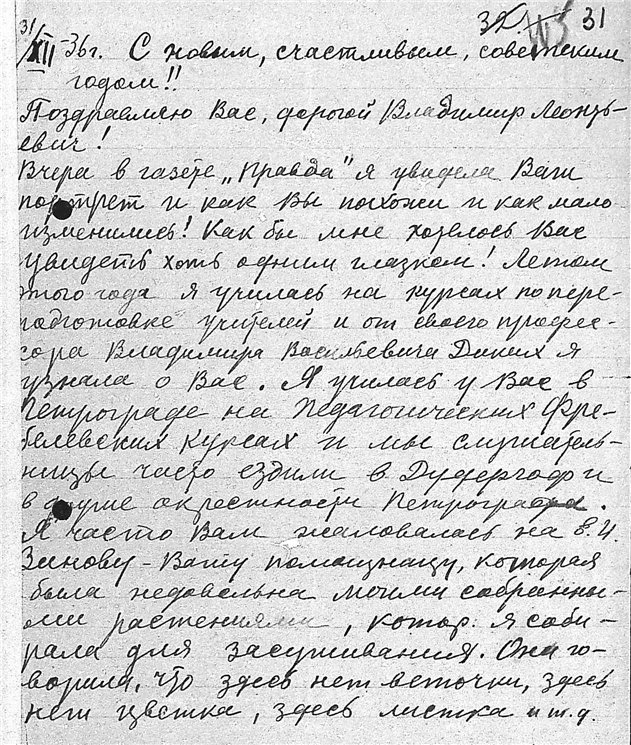 31
31/XII-36г. С новым, счастливым, советским
годом!!
Поздравляю Вас, дорогой Владимир Леонть-
евич!
Вчера в газете „Правда" я увидела Ваш
портрет и как Вы похожи и как мало
изменились! Как бы мне хотелось Вас
увидеть хоть одним глазком! Летом
этого года я училась на курсах по пере-
подготовке учителей и от своего професс-
сора Владимира Васильевича Диких я
узнала о Вас. Я училась у Вас в
Петрограде на Педагогических Фре-
белевских курсах и мы слушатель-
ницы часто ездили в Дудергоф и
в другие окрестности Петрограда.
Я часто Вам жаловалась на Е.И.
Зинову - Вашу помощницу, которая
была недовольна моими собранны-
ми растениями, котор. я соби-
рала для засушивания. Она го-
ворила, что здесь нет веточки, здесь
нет цветка, здесь листка и т.д.